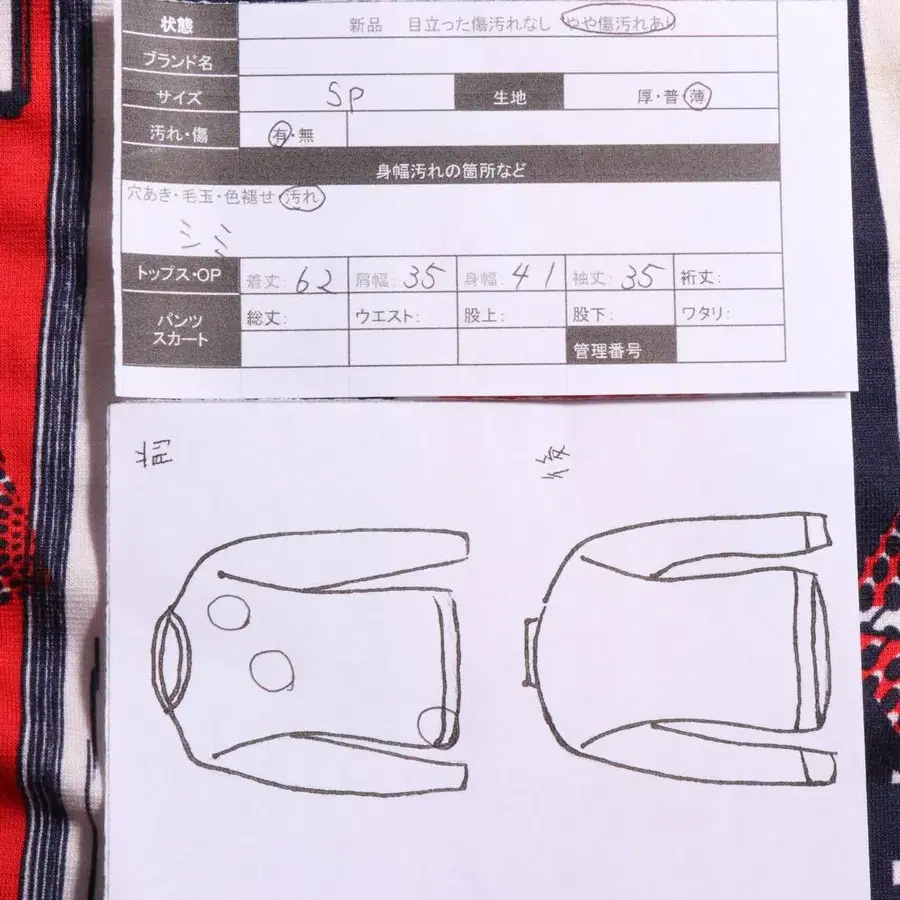 状態 新品 目立った傷汚れなし やや傷汚れあり
ブランド名
サイズ SP 生地 厚・普・薄
汚れ・傷 有・無
身幅汚れの箇所など
穴あき・毛玉・色褪せ・汚れ
シミ
トップス・OP 着丈: 62 肩幅: 35 身幅: 41 袖丈: 35 裄丈:
パンツ スカート 総丈: ウエスト: 股上: 股下: ワタリ:
管理番号
前
後